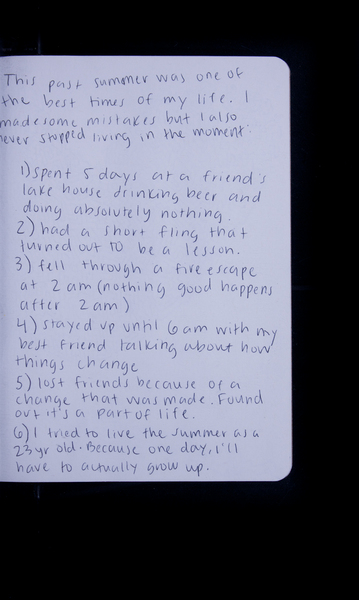 This past summer was one of
the best times of my life. I
made some mistakes but I also
never stopped living in the moment.
1) spent 5 days at a friend's
lake house drinking beer and
doing absolutely nothing.
2) had a short fling that
turned out to be a lesson.
3) fell through a fire escape
at 2 am (nothing good happens
after 2 am)
4) stayed up until 6 am with my
best friend talking about how
things change
5) lost friends because of a
change that was made. Found
out it's a part of life.
6) I tried to live the summer as a
23 yr old. Because one day, I'll
have to actually grow up.